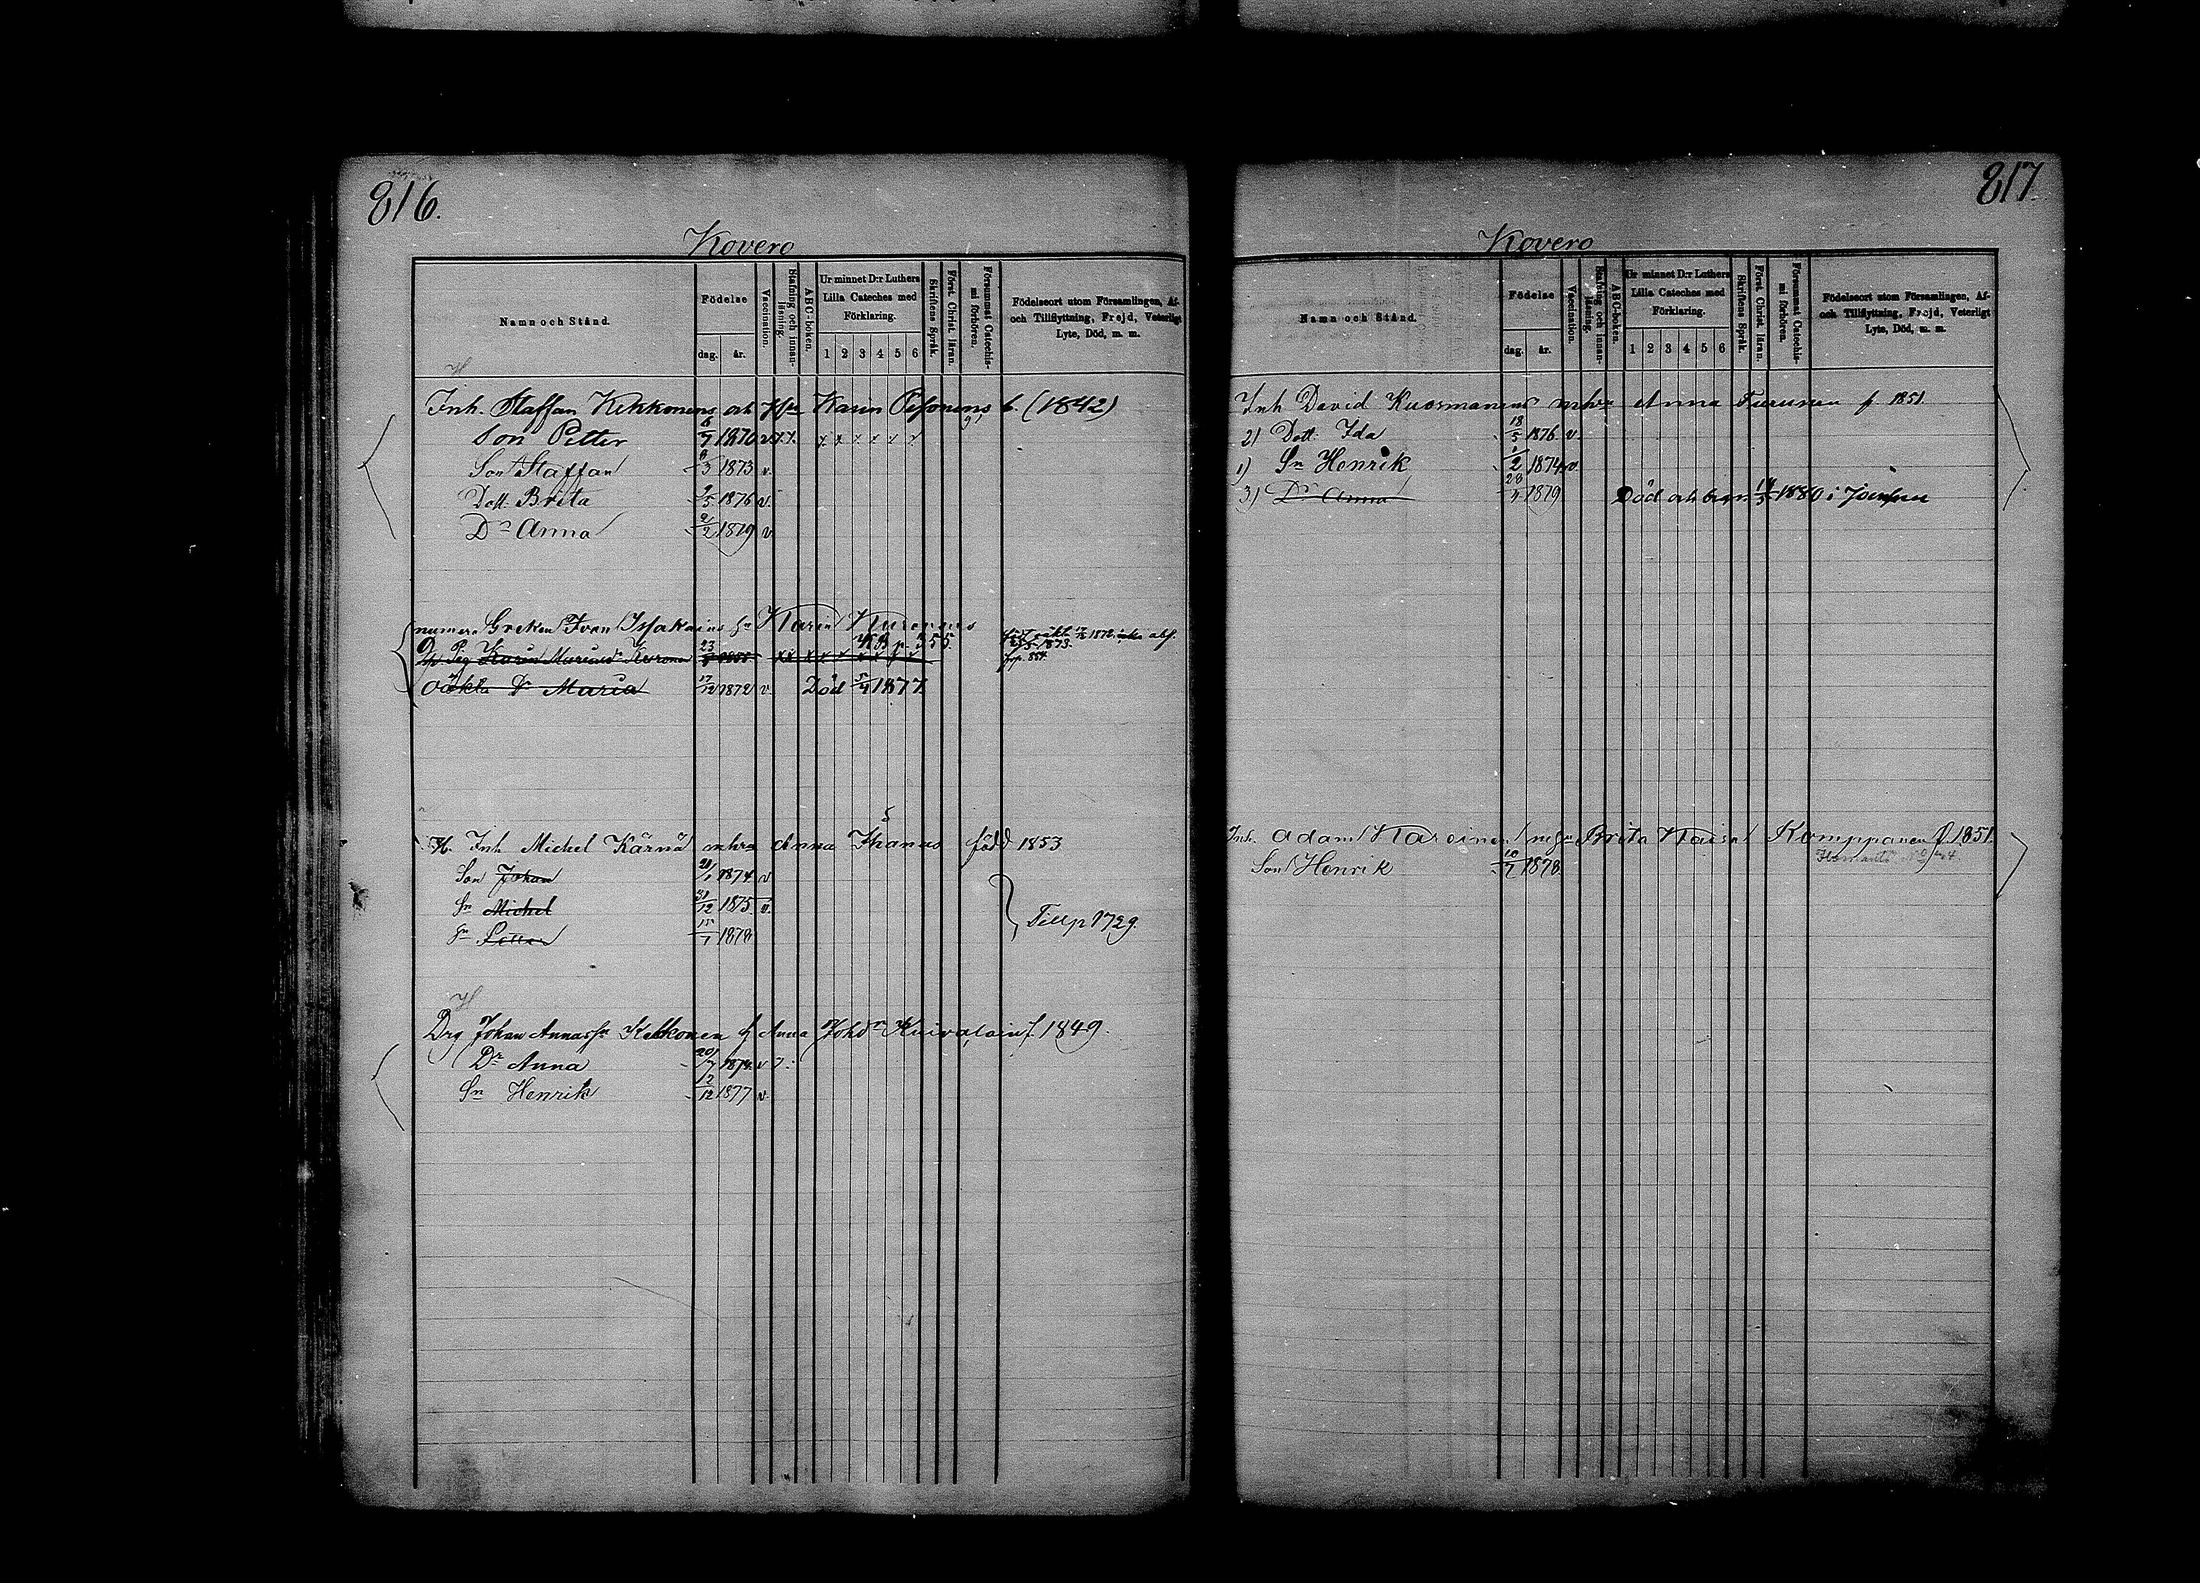 816.
Kovero
Namn och Stånd.
Födelse
dag. år.
Vaccination.
Stafning och innan-läsning.
ABC-boken.
Ur minnet D:r Luthers Lilla Cateches med Förklaring.
1 2 3 4 5 6
Skriftens Språk.
Först. Christ. läran.
Försummat Catechismi förhören.
Födelseort utom Församlingen, Af- och Tillflyttning, Frejd, Veterligt Lyte, Död, m. m.
Inh. Staffan Kekkonens och Karin f. (1842)
Son Petter 6/7 1870 v x x x x x x x x
Son Staffan 3 1873 v.
Dott. Brita 5 1876 v.
Dr Anna 2 1879 v
numera Greken Ivan hu Karin Kuronens
Karin 23 p. 355. 1873.
Oäkta Dr Maria 17/12 1872 v. Död 1877
H. Inh Michel Kärnä m hu Anna Ihanus född 1853
Son Johan 21/1 1874 v
Sn Michel 31/12 1875 v.
Sn Petter 15/1 1878
Till p 1729.
H
Drg Johan Kekkonen Anna Johdr Kuivalain f. 1849.
Dr Anna 20/7 1874 v 7.
Sn Henrik 12/12 1877 v.
817.
Kovero
Namn och Stånd.
Födelse
dag. år.
Vaccination.
Stafning och innan-läsning.
ABC-boken.
Ur minnet D:r Luthers Lilla Cateches med Förklaring.
1 2 3 4 5 6
Skriftens Språk.
Först. Christ. läran.
Försummat Catechismi förhören.
Födelseort utom Församlingen, Af- och Tillflyttning, Frejd, Veterligt Lyte, Död, m. m.
Inh David Kuosmanens m hu Anna Turunen f. 1851.
2) Dott. Ida 18/5 1876 v
1) Sn Henrik 1/2 1874 v
3) Dr Anna 28 1879 Död och begr. 1880 i Joensuu
Inh. Adam Karoinen Brita Kaisa Komppanen f. 1851.
Son Henrik 10/7 1878